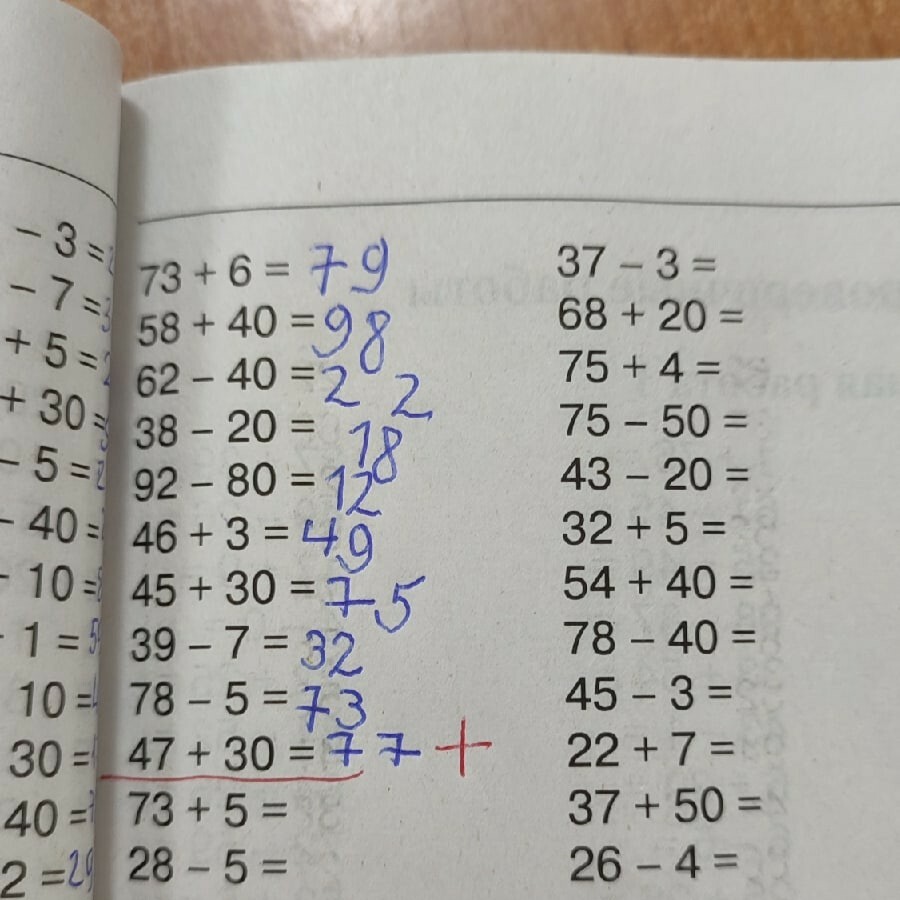 - 3 =
- 7 =
+ 5 =
+ 30 =
- 5 =
- 40 =
10 =
1 =
10 =
30 =
40 =
2 = 29
73 + 6 = 79
58 + 40 = 98
62 - 40 = 22
38 - 20 = 18
92 - 80 = 12
46 + 3 = 49
45 + 30 = 75
39 - 7 = 32
78 - 5 = 73
47 + 30 = 77 +
73 + 5 =
28 - 5 =
37 - 3 =
68 + 20 =
75 + 4 =
75 - 50 =
43 - 20 =
32 + 5 =
54 + 40 =
78 - 40 =
45 - 3 =
22 + 7 =
37 + 50 =
26 - 4 =